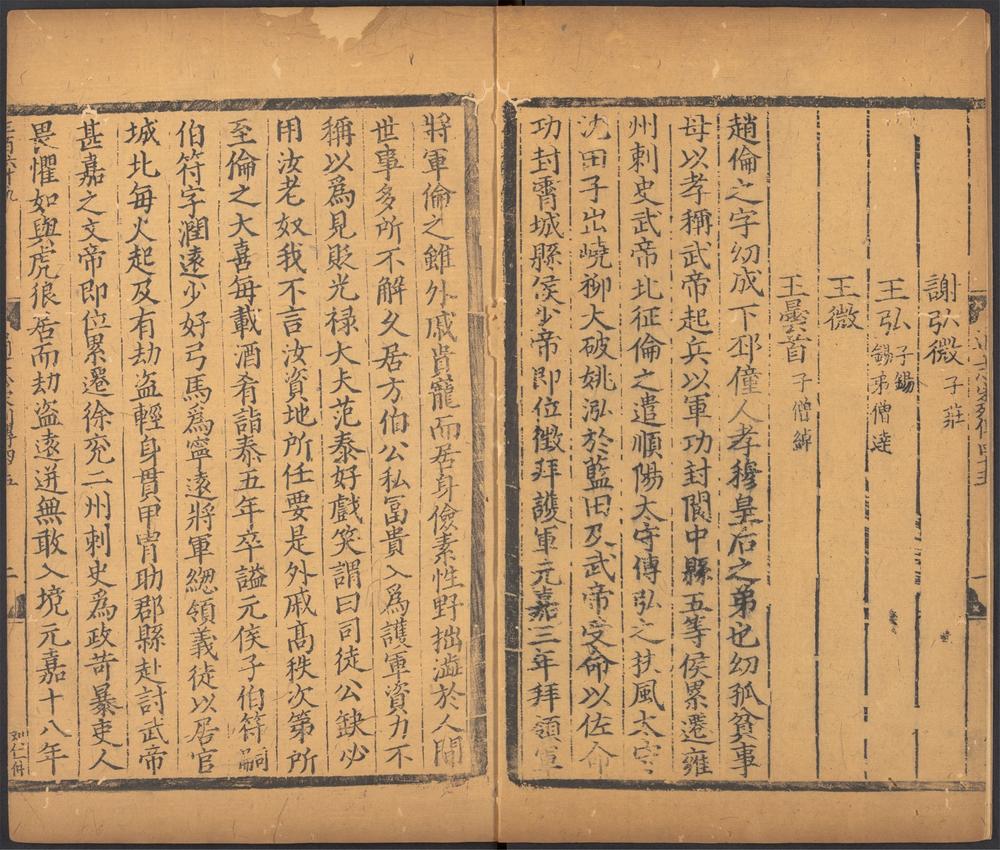 謝弘微 子莊
王弘 子錫 錫弟僧達
王微
王曇首 子僧綽
趙倫之字幼成下邳僮人孝穆皇后之弟也幼孤貧事
母以孝稱武帝起兵以軍功封閬中縣五等侯累遷雍
州刺史武帝北征倫之遣順陽太守傅弘之扶風太守
沈田子出嶢柳大破姚泓於藍田及武帝受命以佐命
功封霄城縣侯少帝即位徵拜護軍元嘉三年拜領軍
將軍倫之雖外戚貴寵而居身儉素性野拙澁於人間
世事多所不解久居方伯公私富貴入為護軍資力不
稱以為見貶光祿大夫范泰好戲笑謂曰司徒公缺必
用汝老奴我不言汝資地所任要是外戚高秩次第所
至倫之大喜每載酒肴詣泰五年卒謚元侯子伯符嗣
伯符字潤遠少好弓馬為寧遠將軍緫領義徒以居官
城北每火起及有劫盜輕身貫甲冑助郡縣赴討武帝
甚嘉之文帝即位累遷徐兖二州刺史為政苛暴吏人
畏懼如與虎狼居而劫盜遠迸無敢入境元嘉十八年